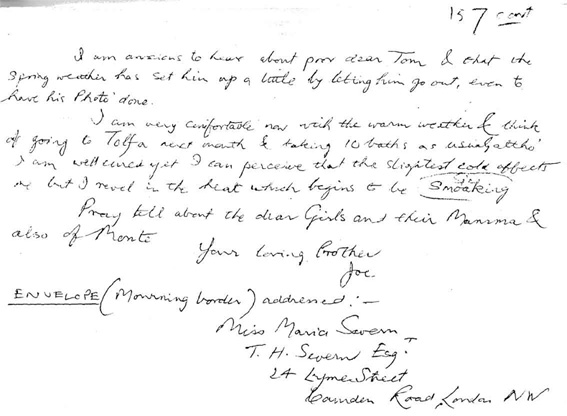 157 cont
I am anxious to hear about poor dear Tom & that the
Spring weather has set him up a little by letting him go out, even to
have his Photo' done.
I am very comfortable now with the warm weather & think
of going to Tolfa next month & taking 10 baths as usual, altho'
I am well cured yet I can perceive that the slightest cold affects
me but I revel in the heat which begins to be Smoaking
Pray tell about the dear Girls and their Mamma &
also of Monte
Your loving Brother
Joe.
ENVELOPE (Mourning border) addressed:-
Miss Maria Severn
T. H. Severn Esqr
24 Lyme Street
Camden Road London NW